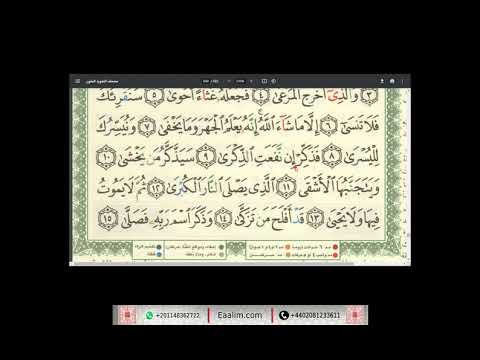 مصحف التجويد الملون
٣ وَالَّذِي أَخْرَجَ الْمَرْعَىٰ ٤ فَجَعَلَهُ غُثَاءً أَحْوَىٰ ٥ سَنُقْرِئُكَ
فَلَا تَنسَىٰ ٦ إِلَّا مَا شَاءَ اللَّهُ إِنَّهُ يَعْلَمُ الْجَهْرَ وَمَا يَخْفَىٰ ٧ وَنُيَسِّرُكَ
لِلْيُسْرَىٰ ٨ فَذَكِّرْ إِن نَّفَعَتِ الذِّكْرَىٰ ٩ سَيَذَّكَّرُ مَن يَخْشَىٰ ١٠
وَيَتَجَنَّبُهَا الْأَشْقَى ١١ الَّذِي يَصْلَى النَّارَ الْكُبْرَىٰ ١٢ ثُمَّ لَا يَمُوتُ
فِيهَا وَلَا يَحْيَىٰ ١٣ قَدْ أَفْلَحَ مَن تَزَكَّىٰ ١٤ وَذَكَرَ اسْمَ رَبِّهِ فَصَلَّىٰ ١٥
+201148362722 Eaalim.com +4402081233611